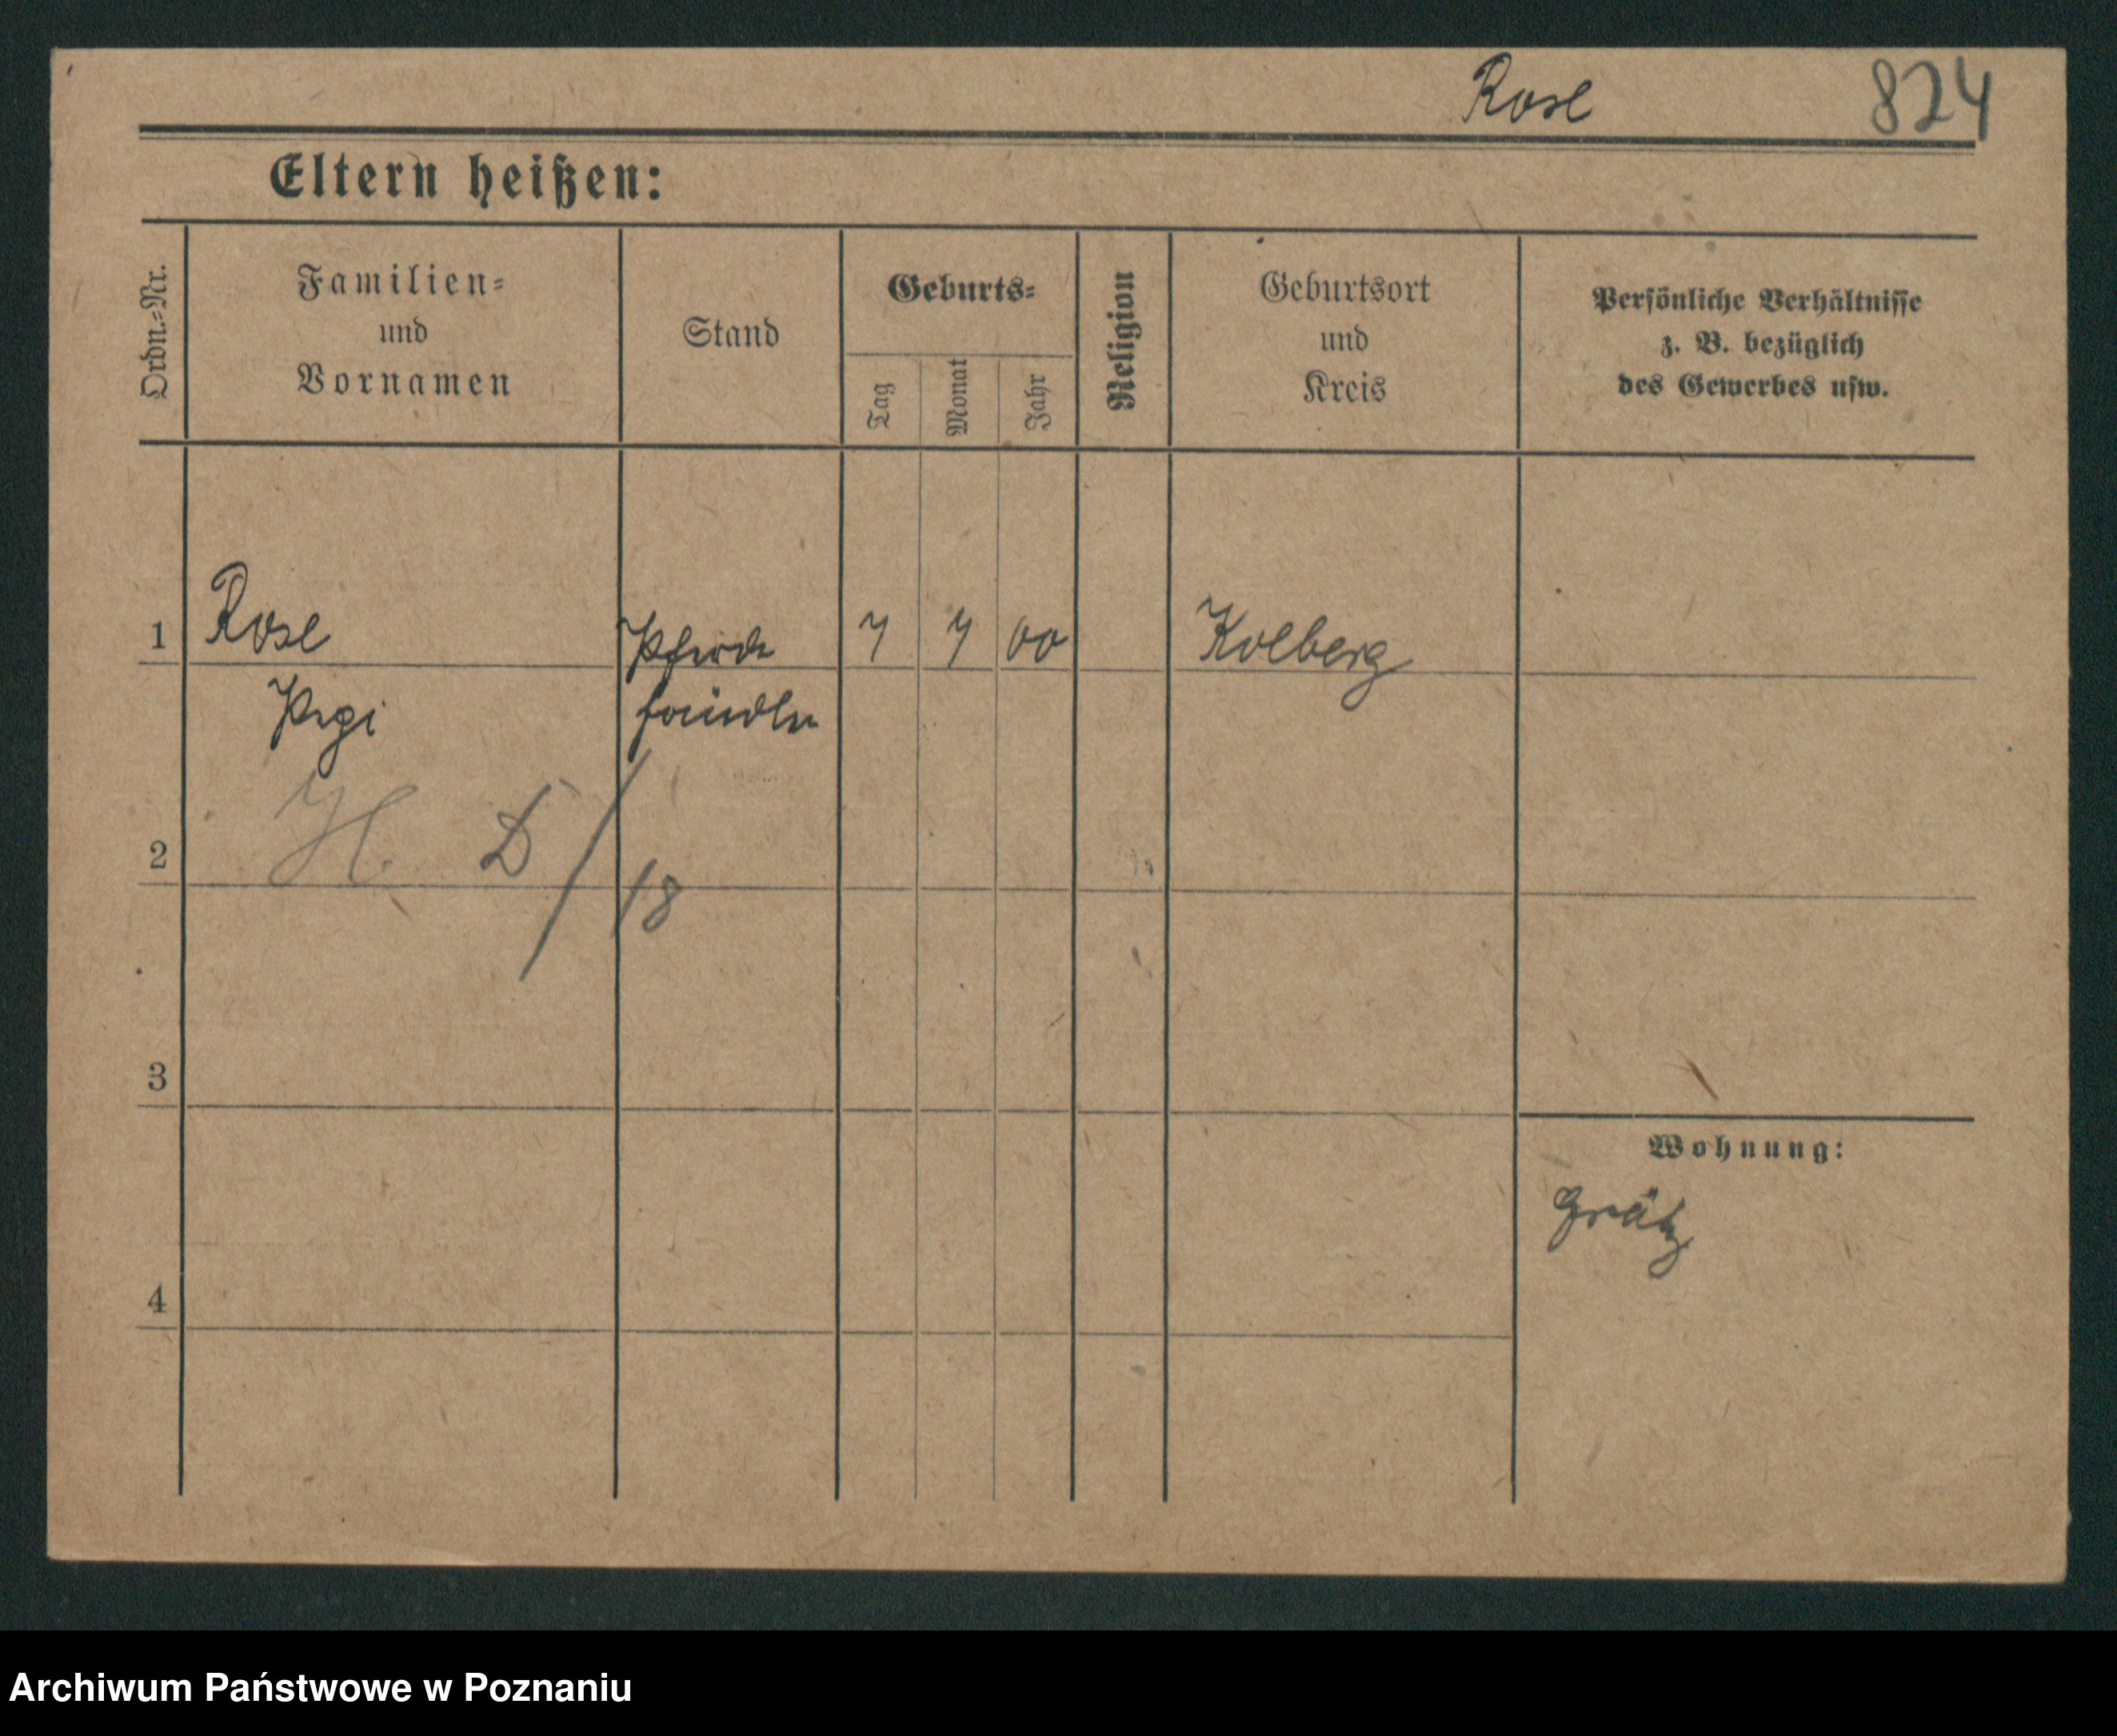 Rose 824
Eltern heißen:
Ordn.-Nr.
Familien-
und
Vornamen
Stand
Geburts-
Tag
Monat
Jahr
Religion
Geburtsort
und
Kreis
Persönliche Verhältnisse
z. B. bezüglich
des Gewerbes usw.
1 Rose Pferde 7 7 00 Kolberg
händler
2 H. D / 18
3
Wohnung:
Grätz
4
Archiwum Państwowe w Poznaniu